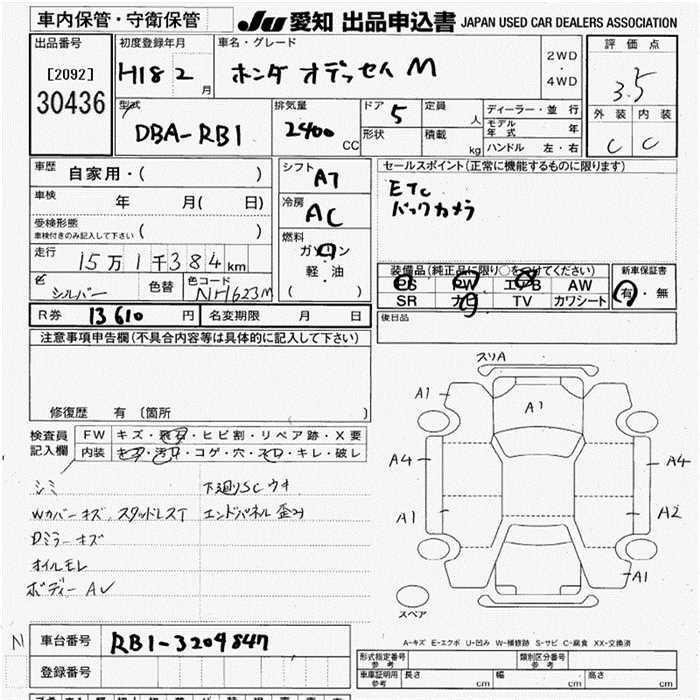 車内保管・守衛保管
JU 愛知 出品申込書 JAPAN USED CAR DEALERS ASSOCIATION
出品番号
[2092]
30436
初度登録年月
H18 2 月
車名・グレード
ホンダ オデッセイ M
2WD
・
4WD
評価点
3.5
外装 内装
C C
型式
DBA-RB1
排気量
2400 CC
ドア 5
形状
定員 人
積載 kg
ディーラー・並行
モデル年式 年
ハンドル 左・右
車歴 自家用・( )
車検 年 月( 日)
受検形態
車検付きのみ記入して下さい ( )
走行 15万1千384km
色 シルバー 色替 色コード NH623M
シフト AT
冷房 AC
燃料
ガソリン
・
軽・油
( )
セールスポイント(正常に機能するものに限ります)
ETC
バックカメラ
装備品(純正品に限り○をつけてください)
PS PW エアB AW
SR ナビ TV カワシート
新車保証書
有・無
後日品
R券 13610 円 名変期限 月 日
注意事項申告欄(不具合内容等は具体的に記入して下さい)
修復歴 有 〔箇所 〕
検査員記入欄
FW キズ・飛石・ヒビ割・リペア跡・X要
内装 キズ・汚れ・コゲ・穴・スレ・キレ・破レ
シミ 下廻りSCウキ
Wカバーキズ、スタッドレスT エンドパネル歪み
Dミラーキズ
オイルモレ
ボディーAU
スリA
A1
A1
A4 A4
A1 A2
A1
スペア
A-キズ E-エクボ U-凹み W-補修跡 S-サビ C-腐食 XX-交換済
N
車台番号 RB1-3209847
登録番号
形式指定番号 参考 類別区分番号 参考
車庫証明用 参考 長さ cm 幅 cm 高さ cm